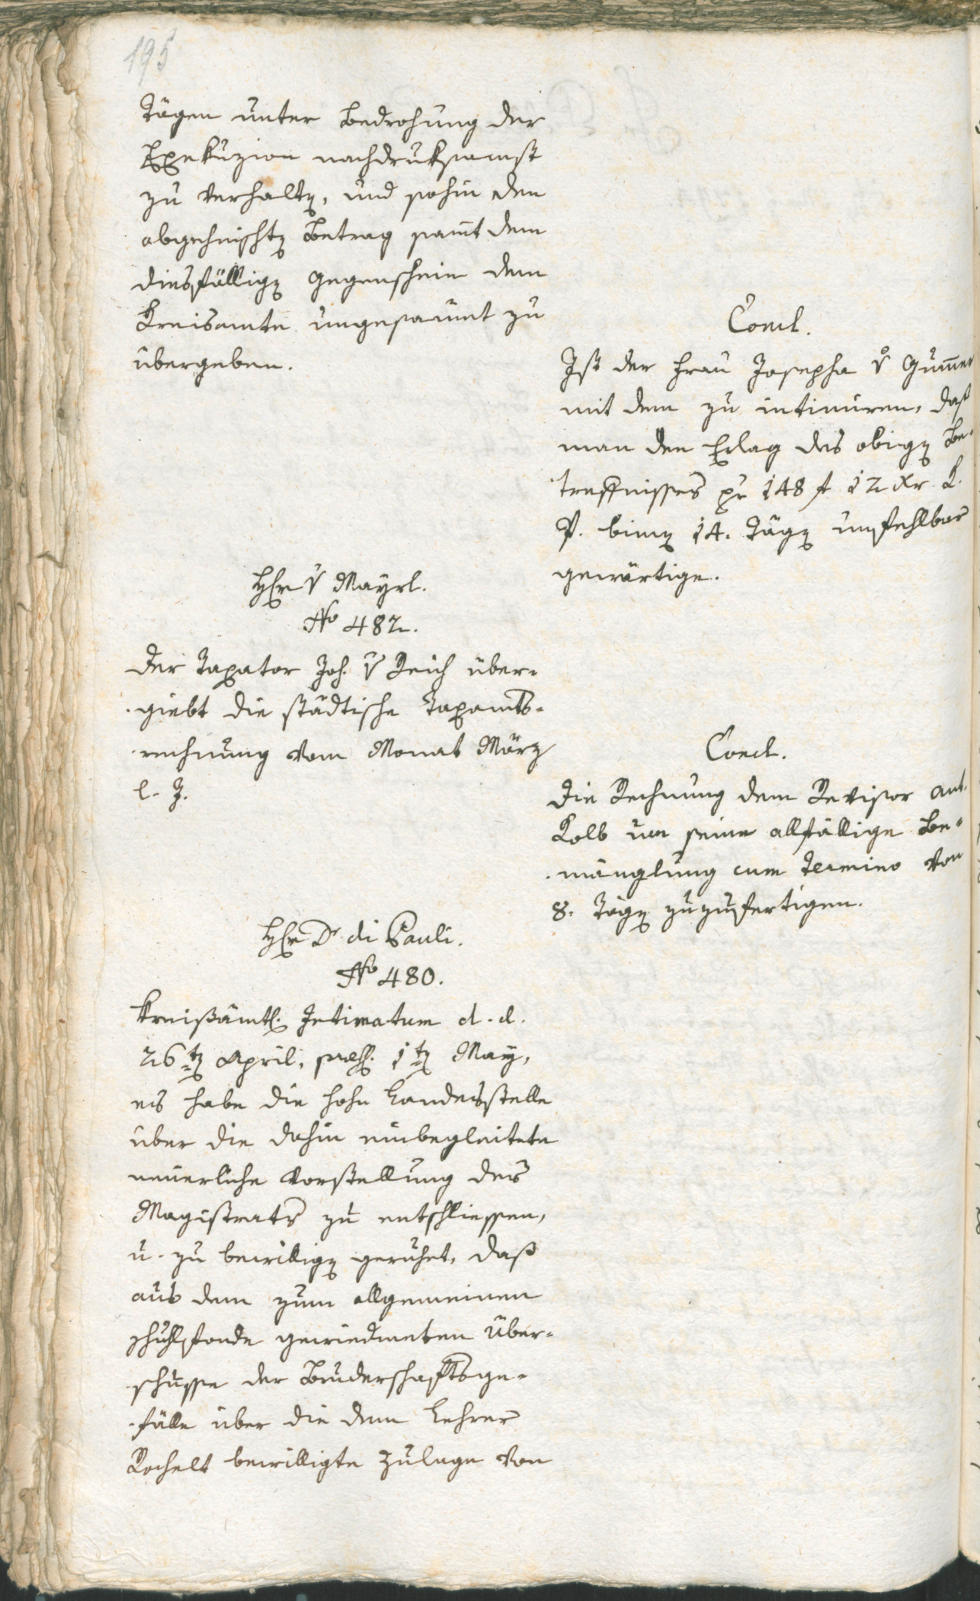 195
Tägen unter Bedrohung der
Exekuzion nachdruksamst
zu verhalten, und sohin den
abgeheischten Betrag samt dem
diesfälligen Gegenschein dem
Kreisamte ungesäumt zu
übergeben.
Concl.
Ist der Frau Josepha v Gumer
mit dem zu intimiren, daß
man den Erlag des obigen Be-
treffnisses pr 148 f 12 Xr R.
V. binen 14. Tägen unfehlbar
gewärtige.
Hhr v Mayrl.
No 482.
Der Taxator Joh. v Reich über-
giebt die städtische Taxamts-
rechnung vom Monat März
l. J.
Concl.
Die Rechnung dem Revisor Ant.
Kolb um seine allfällige Be-
mänglung cum Termino von
8. Tägen zuzufertigen.
Hhr Dr di Pauli.
No 480.
Kreißämtl. Intimatum d. d.
26ten April, præs. 1ten May,
es habe die hohe Landesstelle
über die dahin einbegleitete
neuerliche Vorstellung des
Magistrats zu entschliessen,
u. zu bewilligen geruhet, daß
aus dem zum allgemeinen
Schulfonde gewiedmeten Über-
schusse der Bruderschaftsge-
fälle über die dem Lehrer
Rochelt bewilligte Zulage von